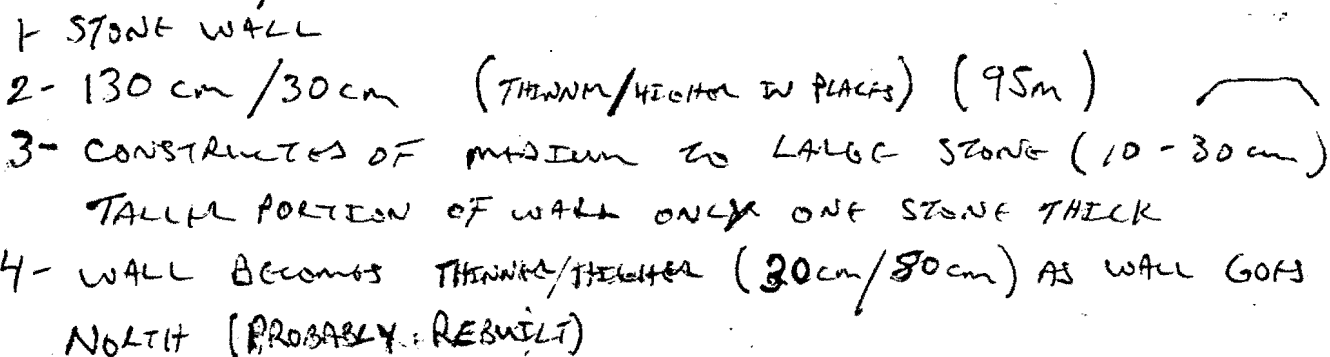 1- STONE WALL
2- 130 cm/30cm (THINNER/HIGHER IN PLACES) (95m)
3- CONSTRUCTED OF MEDIUM TO LARGE STONE (10-30cm)
TALLER PORTION OF WALL ONLY ONE STONE THICK
4- WALL BECOMES THINNER/HIGHER (30cm/80cm) AS WALL GOES
NORTH (PROBABLY REBUILT)